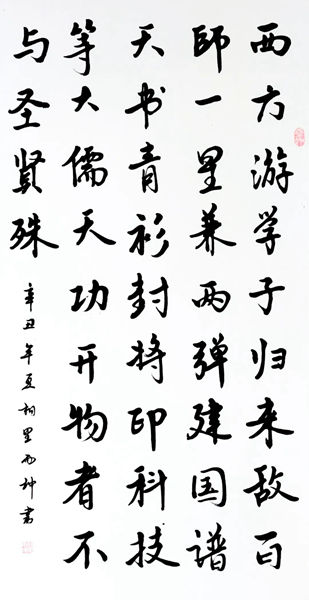 西方游学子归来敌百
師一星兼两弹建国谱
天书青衫封将印科技
等大儒天功开物者不
与圣贤殊
辛丑年夏 坤書